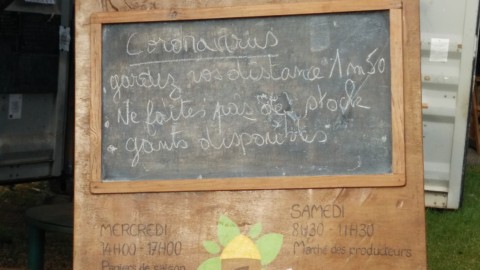 Coronavirus
. gardez vos distance 1m50
. Ne faites pas de stock
. gants disponibles
MERCREDI
14H00 - 17H00
Paniers de saison
SAMEDI
8H30 - 11H30
Marché des producteurs